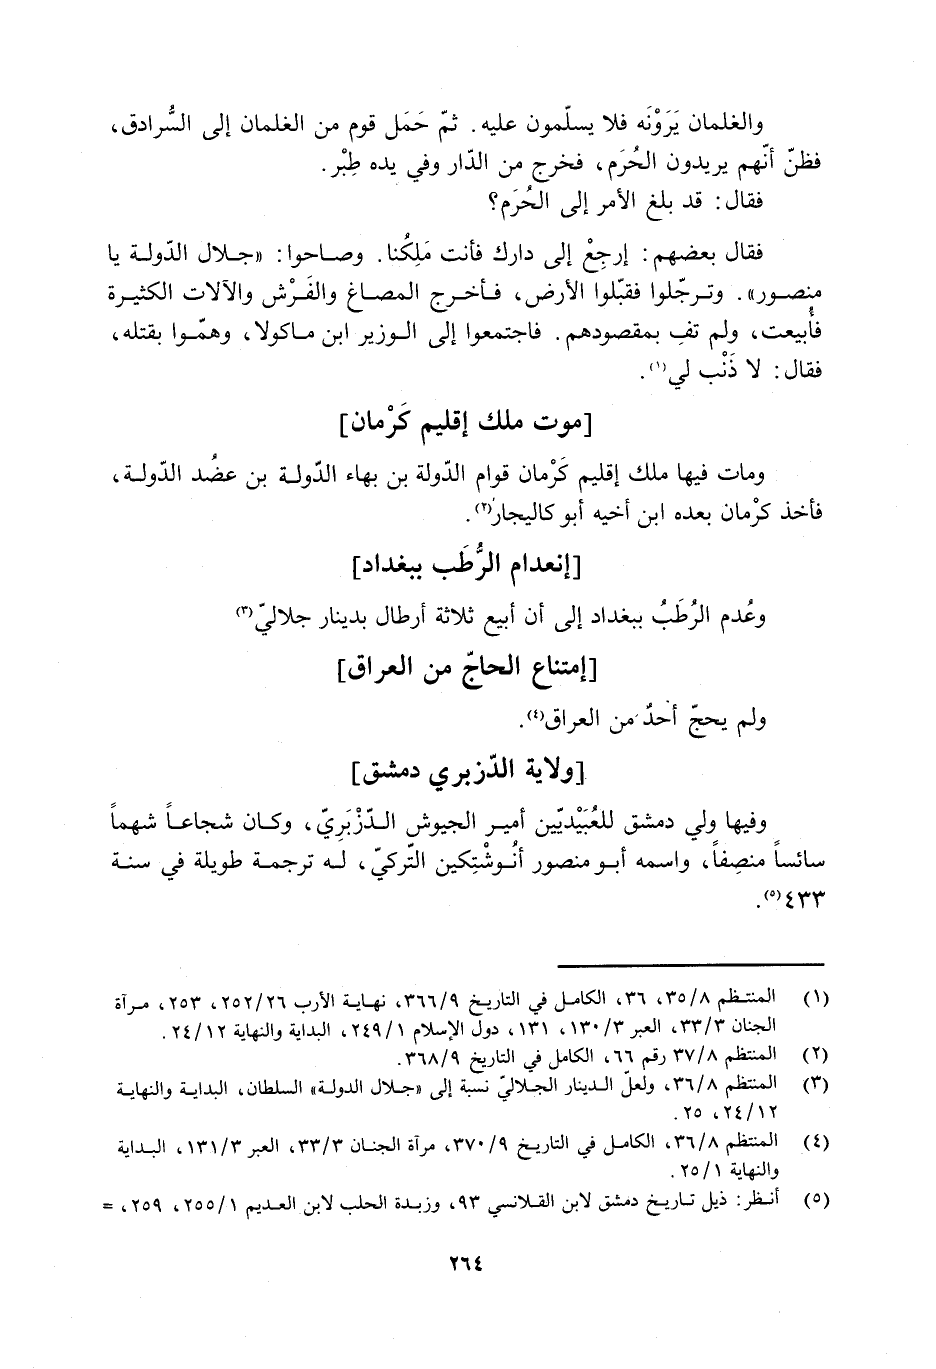 والغلمان يَرَوْنَه فلا يسلّمون عليه. ثمّ حَمَل قوم من الغلمان إلى السُّرادق،
فظنّ أنّهم يريدون الحُرَم، فخرج من الدّار وفي يده طِبْر.
فقال: قد بلغ الأمر إلى الحُرَم؟
فقال بعضهم: إرجِعْ إلى دارك فأنت مَلِكُنا. وصاحوا: «جلال الدّولة يا
منصور». وترجّلوا فقبّلوا الأرض، فأخرج المصاغ والفَرْش والآلات الكثيرة
فأُبيعت، ولم تفِ بمقصودهم. فاجتمعوا إلى الوزير ابن ماكولا، وهمّوا بقتله،
فقال: لا ذَنْب لي(١).
[موت ملك إقليم كَرْمان]
ومات فيها ملك إقليم كَرْمان قوام الدّولة بن بهاء الدّولة بن عضُد الدّولة،
فأخذ كرْمان بعده ابن أخيه أبو كاليجار(٢).
[إنعدام الرُّطَب ببغداد]
وعُدم الرُطَبُ ببغداد إلى أن أبيع ثلاثة أرطال بدينار جلاليّ(٣)
[إمتناع الحاجّ من العراق]
ولم يحجّ أحدٌ من العراق(٤).
[ولاية الدّزبري دمشق]
وفيها ولي دمشق للعُبَيْديّين أمير الجيوش الدّزْبَريّ، وكان شجاعاً شهماً
سائساً منصِفاً، واسمه أبو منصور أنُوشْتِكين التّركيّ، له ترجمة طويلة في سنة
٤٣٣(٥).
(١) المنتظم ٣٥/٨، ٣٦، الكامل في التاريخ ٣٦٦/٩، نهاية الأرب ٢٥٢/٢٦، ٢٥٣، مرآة
الجنان ٣٣/٣، العبر ١٣٠/٣، ١٣١، دول الإسلام ٢٤٩/١، البداية والنهاية ٢٤/١٢.
(٢) المنتظم ٣٧/٨ رقم ٦٦، الكامل في التاريخ ٣٦٨/٩.
(٣) المنتظم ٣٦/٨، ولعلّ الدينار الجلاليّ نسبة إلى «جلال الدولة» السلطان، البداية والنهاية
٢٤/١٢، ٢٥.
(٤) المنتظم ٣٦/٨، الكامل في التاريخ ٣٧٠/٩، مرآة الجنان ٣٣/٣، العبر ١٣١/٣، البداية
والنهاية ٢٥/١.
(٥) أنظر: ذيل تاريخ دمشق لابن القلانسي ٩٣، وزبدة الحلب لابن العديم ٢٥٥/١، ٢٥٩، =
٢٦٤